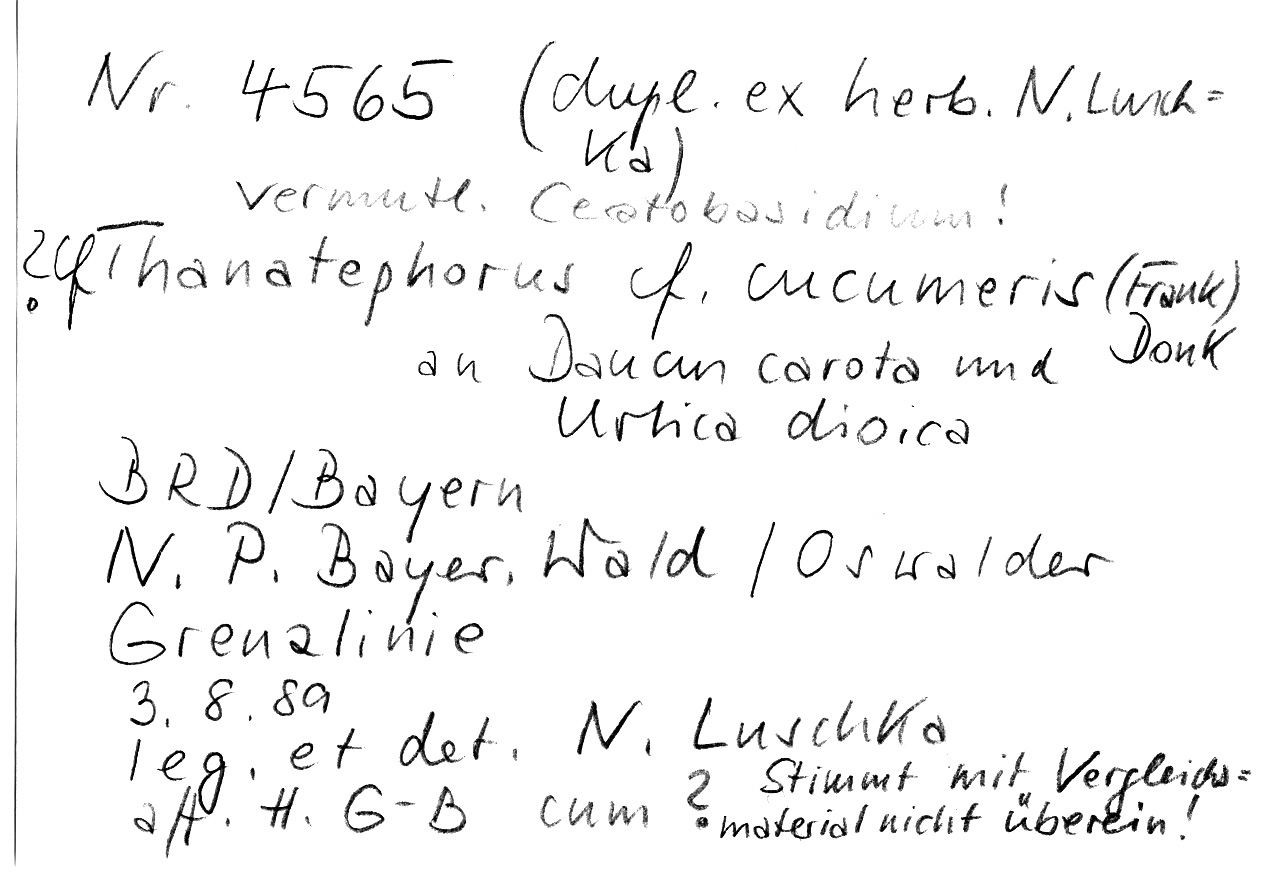 Nr. 4565 (dupl. ex herb. N. Lusch=
Ka)
vermutl. Ceratobasidium!
? cf Thanatephorus cf. cucumeris (Frank)
Donk
an Daucus carota und
Urtica dioica
BRD/Bayern
N. P. Bayer. Wald / Oswalder
Grenzlinie
3. 8. 89
leg. et det. N. Luschka
aff. H. G-B cum ? Stimmt mit Vergleichs=
material nicht überein!